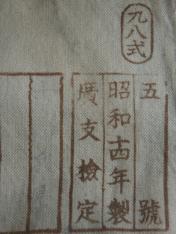 九八式
五號
昭和十四年製
廣支檢定